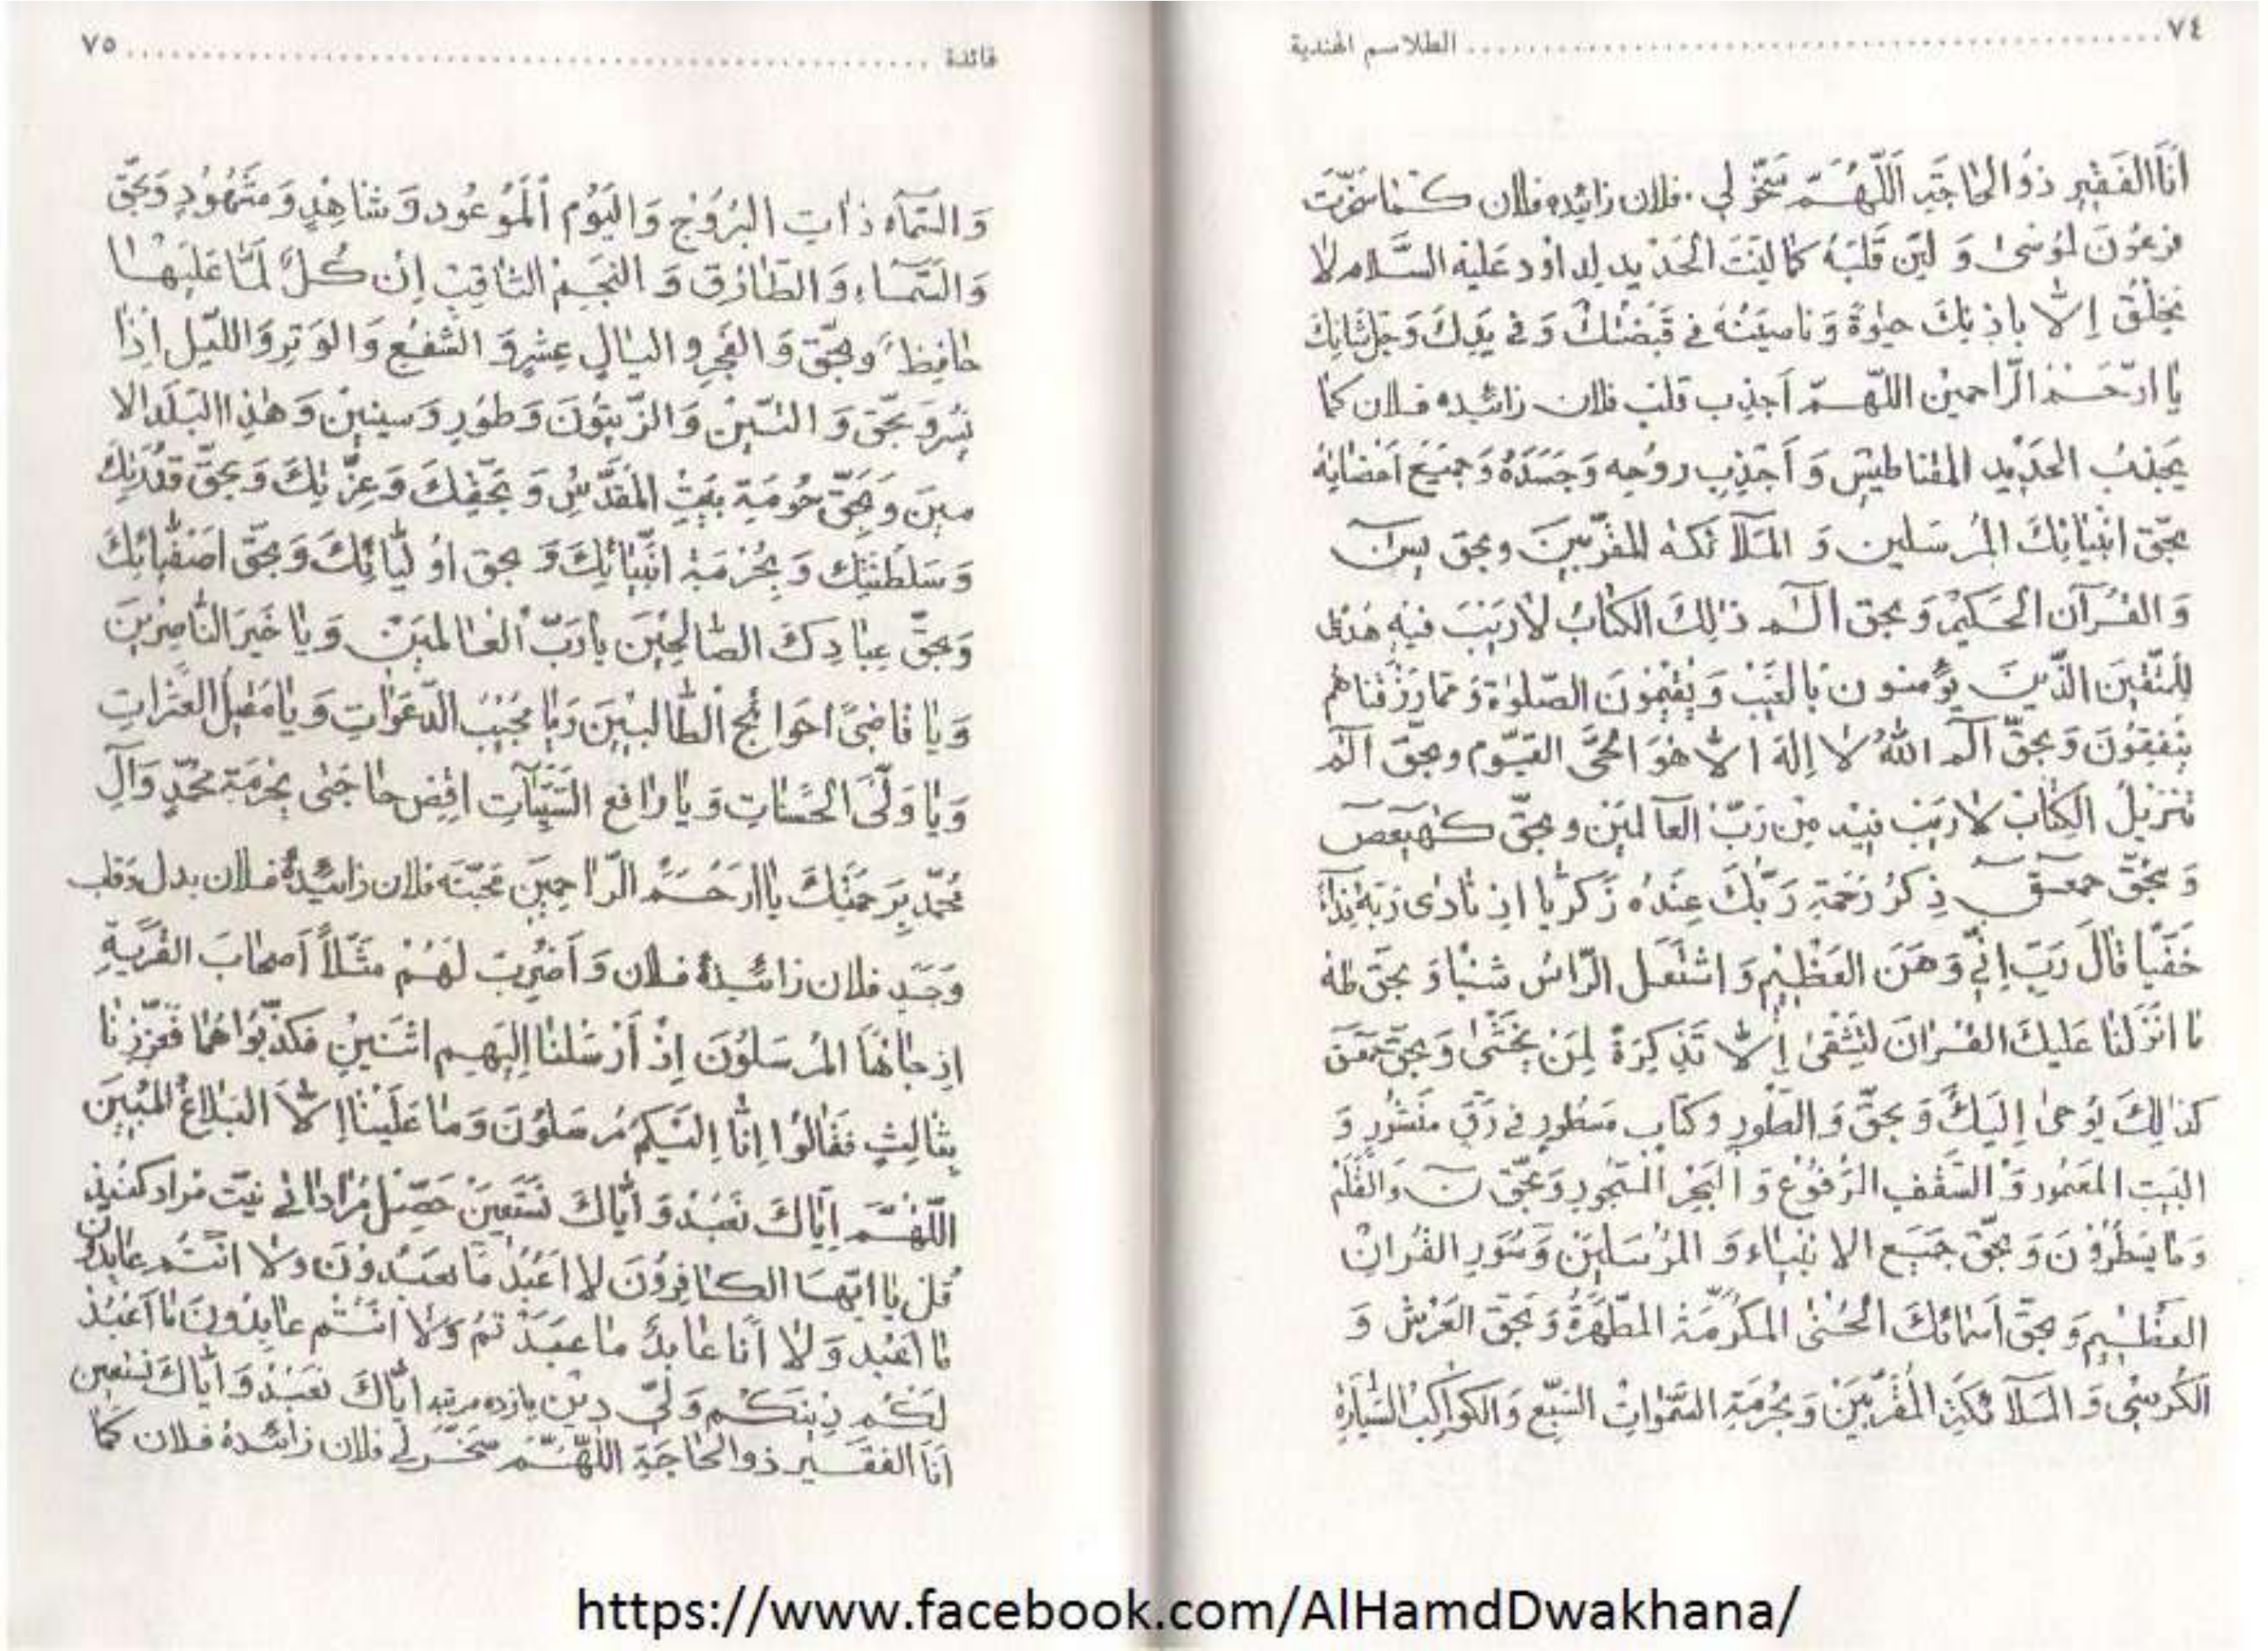 ٧٤ ........ الطلاسم الهندية
أَنَا الفَقِيرِ ذُو الحَاجَةِ اَللّٰهُمَّ سَخِّرْ لِي فلان زائيده فلان كما سَخَّرْتَ
فرعَوْنَ لِمُوسىٰ وَ لَيِّن قَلْبَهُ كَمَا لَيَّنْتَ الْحَدِيدَ لِداوُد عَلَيْهِ السَّلَام لَا
يَخْلُقُ إِلَّا بِاذْنِكَ حيٰوةً وَ ناصيَتُهُ فى قَبْضَتِكَ وَ فى يَدِكَ وَ جَلَّ ثَنَائِكَ
يَا ارْحَمَ الرَّاحِمِيْنَ اللّٰهُمَّ اَجذِب قَلْب فلان زائيده فلان كما
يَجْذِبُ الحَدِيْد المقناطيس وَ اَجْذِب روُحِه وَ جَسَدَهُ وَ جَمِيْعَ اَعْضَائِهُ
بحَقّ انْبِيَائِكَ المُرْسَلِين وَ المَلَآئكه المقَرَّبِينَ وبحق يس
وَ القُرْآن الْحَكِيْم وَ بحق الٓمٓ ذٰلِكَ الكِتَابُ لَا رَيْبَ فيهِ هُدىً
لِلْمُتَّقِينَ الَّذِينَ يُؤمنون بَالغَيْبِ وَ يُقِيْمُونَ الصَّلٰوةَ وَ مِمَّا رَزَقْنَاهُم
يُنْفِقُونَ وَ بحَقِّ الٓمٓ اللّٰهُ لَا إِلهَ الَّا هُوَ الْحَيُّ القَيّوم وبحَقّ الٓمٓ
تَنْزِيْلُ الكِتَابُ لَا رَيْبَ فِيْهِ مِنْ رَبِّ العَالمِيْنَ وبحَقِّ كهيعص
وَ بحَقّ حمعسق ذِكْرُ رَحْمَةِ رَبِّكَ عَبْدُه زَكَرِيَّا اذ نَادَى رَبَّهُ نِدَآءً
خَفِيًّا قَالَ رَبِّ اِنِّي وَهَنَ العَظْمِ وَ اشتَعَلَ الرَّاسُ شَيْبًا وَ بحَقّ طه
مَا اَنْزَلْنَا عَلَيْكَ القُرْاٰنَ لِتَشْقىٰ إِلَّا تَذكِرَةً لِمَنْ يَخْشىٰ وَ بِحَقّ حمعسق
كَذٰلِكَ يُوحىٰ إِلَيْكَ وَ بحَقِّ وَ الطُّورِ وكتَاب مَسْطُورٍ فى رَقٍّ مَنْشُورٍ وَ
البَيْتِ المَعْمُور وَ السَّقْفِ المَرْفُوْعِ وَ البَحْرِ المَسْجُورِ وَ بحَقّ نٓ وَالقَلَمْ
وَ مَا يَسْطُرُوْنَ وَ بحَقّ جَمِيْع الانبياء وَ المُرْسَلِيْنَ وَ سُوَرِ القُرآنِ
العَظِيْمِ وَ بحَقّ اَسْمَائِكَ الْحُسْنىٰ المُكرَّمَةِ المُطَهَّرَةُ وَ بحَقّ العَرْشِ وَ
الكُرسِيْ وَ المَلَآئكَةِ المُقَرَّبِيْنَ وَ بحُرْمَةِ السَّمٰوَاتِ السَّبْع وَ الكَوَاكِبُ السَّيَّارَةِ
فائدة ........ ٧٥
وَ السَّمَآءِ ذَاتِ البُرُوْجِ وَ اليَوْمِ الْمَوْعُود وَ شَاهِدٍ وَ مَشْهُوْدٍ وَ بحَقّ
وَ السَّمَآءِ وَ الطَّارِق وَ النَّجْمِ الثَّاقِبِ اِن كُلُّ لَمَّا عَلَيْهَا
حَافِظ وبحَقّ وَ الفَجْرِ و اليَالٍ عِشْرٍ وَ الشَّفْعِ وَ الوَتِر وَ اللَّيْل اِذَا
يَسْر وَ بحَقّ وَ التِّيْن وَ الزَّيْتُونَ وَ طُورِ وَ سينينَ وَ هٰذَا البَلَد الا
مينَ وَ بحَقّ حُومَية بَيْتِ المَقَدَّسِ وَ بحَقِّكَ وَ عِزَّتِكَ وَ بحَقّ قُدْرَتِكَ
وَ سَلْطَنَتِكَ وَ بحُرْمَةِ انْبِيَائِكَ وَ بحق اوْلِيَائِكَ وَ بحَقّ اَصْفِيَائِكَ
وَ بحَقّ عِبَادِكَ الصَّالِحِيْنَ يَا رَبّ العَالَمِيَن وَ يَا خَيرَ النَّاصِرِيْنَ
وَ يَا قَاضِيَ احَوَائِج الطَّالِبِيْنَ وَ يَا مُجِيْبُ الدَّعَوَاتِ وَ يَا مُقْبِلُ العَثَرَاتِ
وَ يَا وَلِيَّ الحَسَنَاتِ وَ يَا رَافع السَّيِّئَاتِ اقِض حَاجَتىٰ بحُرْمَةِ مُحَمَّدٍ وَآلِ
مُحَمَّد بِرَحمَتِكَ يَا ارَحَمَ الرَّاحِمِينَ مَحَبَّتَه فلان زائيدهُ فلان بدل وَقلب
وَ جَسَدِ فلان زائيدهُ فلان وَ اَضْرِب لَهُمْ مَثَلاً اَصحَابَ القَرْيَةِ
اِذ جَاءَهَا المُرْسَلُوْنَ اِذْ اَرْسَلْنَا اِلَيْهِم اثَنَينِ فَكَذَّبُوْاهُمَا فَعَزَّزْنَا
بِثَالِثٍ فَقَالُوا اِنَّا اِلَيْكُم مُرسَلُوْنَ وَ مَا عَلَيْنَا اِلَّا البَلَاغُ المُبِيْنَ
اللّٰهُمَّ اِيَّاكَ نَعْبُدْ وَ اَيَّاكَ نَسْتَعِيْنَ حَصِّل مُرَادَاتي نيت مراد كنيد
قُل يَا ايّهَا الكَافِرُوْنَ لَا اَعْبُدُ مَا تعبُدُوْنَ وَلَا اَنْتُم عَابِدُوْنَ
مَا اَعْبُد وَ لَا اَنَا عَابِدُ مَا عَبَدْتُمْ وَ لَا اَنْتُمْ عَابِدُونَ مَا اَعْبُدْ
لَكُم دِيْنَكُم وَ لِيَ دِيْن يازده مرتبه ايّاكَ نَعْبُدُ وَ ايَّاكَ نَسْتَعِين
اَنَا الفَقَير ذو الحَاجَةِ اللّٰهُمَّ سَخِّر لي فلان زائيدهُ فلان كَمَا
https://www.facebook.com/AlHamdDwakhana/